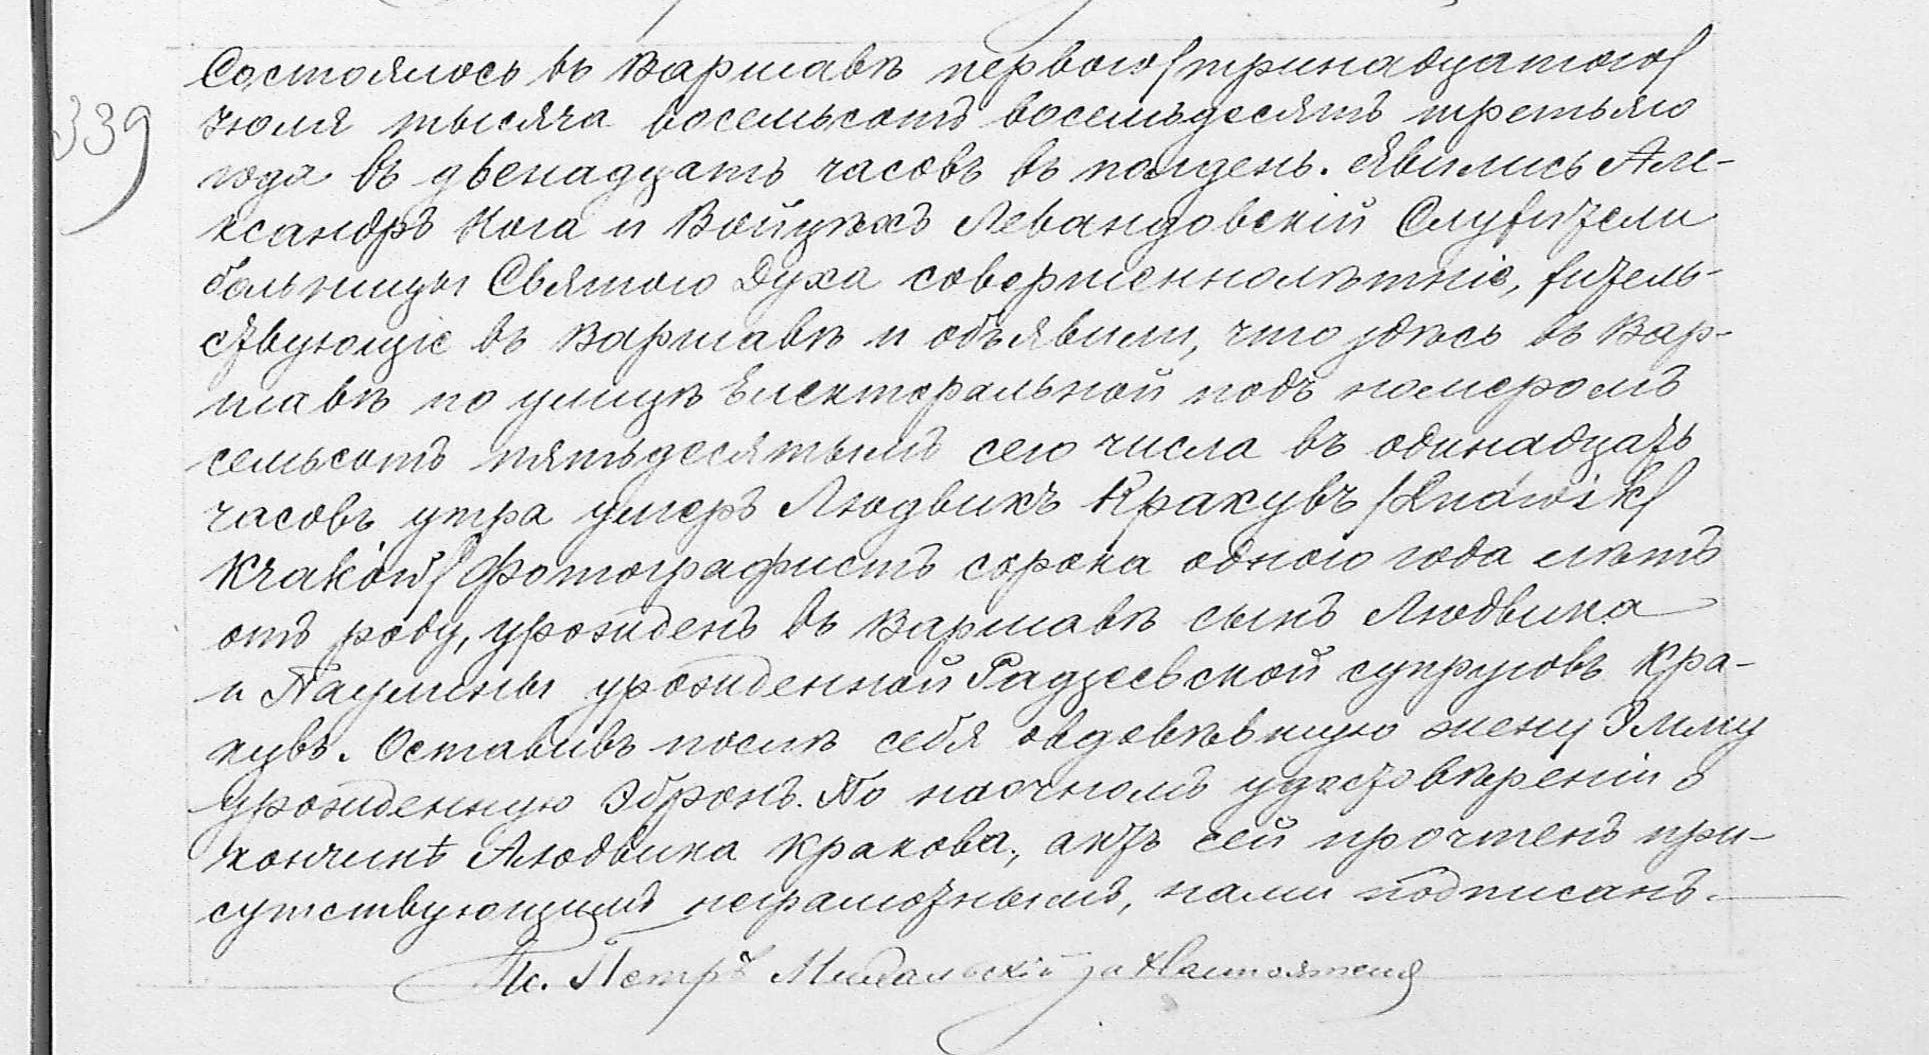 339
Состоялось въ Варшавѣ перваго /тринадцатаго/
Іюля тысяча восемьсотъ восемьдесятъ третьяго
года въ двенадцать часовъ въ полдень. Явились Але-
ксандръ Кога и Войцѣхъ Левандовскій Служители
больницы Святаго Духа совершеннолѣтніе, житель-
ствующіе въ Варшавѣ и объявили, что здѣсь въ Вар-
шавѣ по улицѣ Електоральной подъ номеромъ
семьсотъ пятьдесятымъ сего числа въ одинадцать
часовъ утра умеръ Людвикъ Кракувъ /Ludwik
Kraków/ фотографистъ сорока одного года лѣтъ
отъ роду, урожденъ въ Варшавѣ сынъ Людвика
и Паулины урожденной Радзеевской супруговъ Кра-
кувъ. Оставивъ послѣ себя овдовѣвшую жену Эмму
урожденную Эбронъ. По наочномъ удостовѣреніи о
кончинѣ Людвика Кракова, актъ сей прочтенъ при-
сутствующимъ неграмотнымъ, нами подписанъ.
Кс. Петръ за Настоятеля